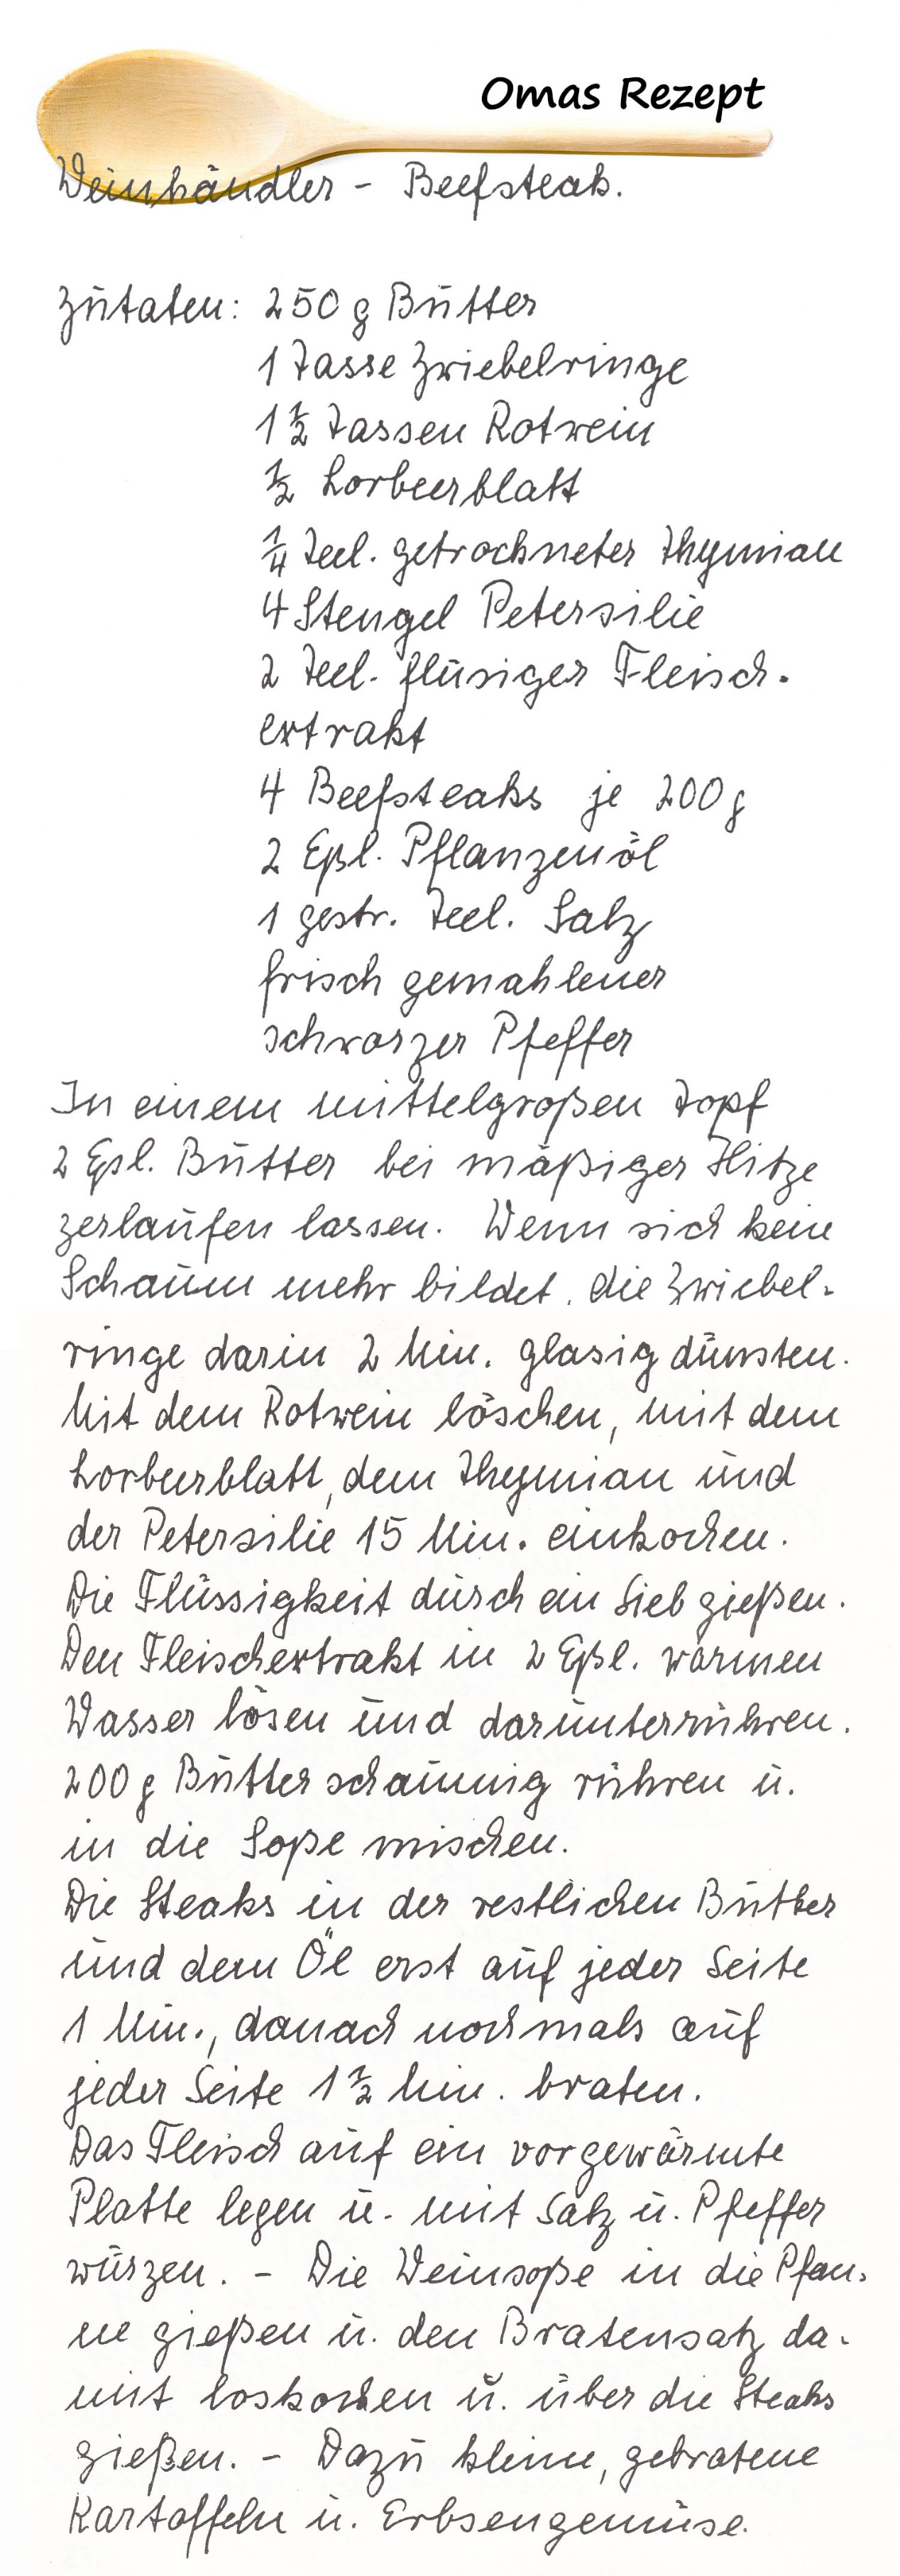 Omas Rezept
Weinhändler - Beefsteak.
Zutaten: 250 g Butter
1 Tasse Zwiebelringe
1 1/2 Tassen Rotwein
1/2 Lorbeerblatt
1/4 Teel. getrockneter Thymian
4 Stengel Petersilie
2 Teel. flüsiger Fleisch-
extrakt
4 Beefsteaks je 200 g
2 Eßl. Pflanzenöl
1 gestr. Teel. Salz
frisch gemahlener
schwarzer Pfeffer
In einem mittelgroßen Topf
2 Eßl. Butter bei mäßiger Hitze
zerlaufen lassen. Wenn sich keine
Schaum mehr bildet, die Zwiebel-
ringe darin 2 Min. glasig dünsten.
Mit dem Rotwein löschen, mit dem
Lorbeerblatt, dem Thymian und
der Petersilie 15 Min. einkochen.
Die Flüssigkeit durch ein Sieb gießen.
Den Fleischextrakt in 2 Eßl. warmen
Wasser lösen und darunterrühren.
200 g Butter schaumig rühren u.
in die Soße mischen.
Die Steaks in der restlichen Butter
und dem Öl erst auf jeder Seite
1 Min., danach nochmals auf
jeder Seite 1 1/2 Min. braten.
Das Fleisch auf ein vorgewärmte
Platte legen u. mit Salz u. Pfeffer
würzen. - Die Weinsoße in die Pfan-
ne gießen u. den Bratensatz da-
mit loskochen u. über die Steaks
gießen. - Dazu kleine, gebratene
Kartoffeln u. Erbsengemüse.